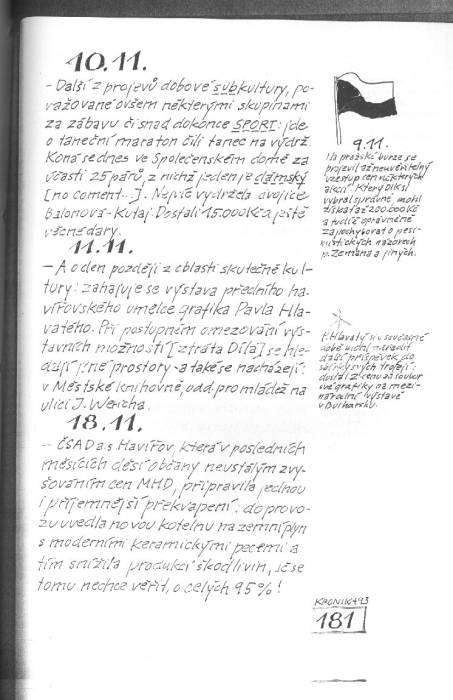 10.11.
- Další z projevů dobové subkultury, po-
važované ovšem některými skupinami
za zábavu či snad dokonce SPORT: jde
o taneční maraton čili tanec na výdrž.
Koná se dnes ve Společenském domě za
účasti 25 párů, z nichž jeden je dámský
[no coment...]. Nejvíc vydržela dvojice
Balonová-Kutaj. Dostali 15.000 Kč a ještě
věcné dary.
11.11.
- A o den později z oblasti skutečné kul-
tury: zahajuje se výstava předního ha-
vířovského umělce grafika Pavla Hla-
vatého. Při postupném omezování výs-
tavních možností [ztráta Díla] se hle-
dají jiné prostory - a také se nacházejí:
v Městské knihovně, odd. pro mládež na
ulici J. Wericha.
18.11.
- ČSAD a.s. Havířov, která v posledních
měsících děsí občany neustálým zvy-
šováním cen MHD, připravila jednou
i příjemnější překvapení: do provo-
zu uvedla novou kotelnu na zemní plyn
s moderními keramickými pecemi a
tím snížila produkci škodlivin, až se
tomu nechce věřit, o celých 95%!
9.11.
Na pražské burze se
projevil až neuvěřitelný
vzestup cen některých
akcií. Který DIK si
vybral správně, mohl
získat až 200.000 Kč
a tudíž oprávněně
zapochybovat o pesi-
mistických názorech
p. Zemana a jiných.
P. Hlavatý si v současné
době mohl
další příspěvek do
trofejí:
dostal 2. cenu za soubor
své grafiky na mezi-
národní výstavě
v Bulharsku.
KRONIKA 93
181